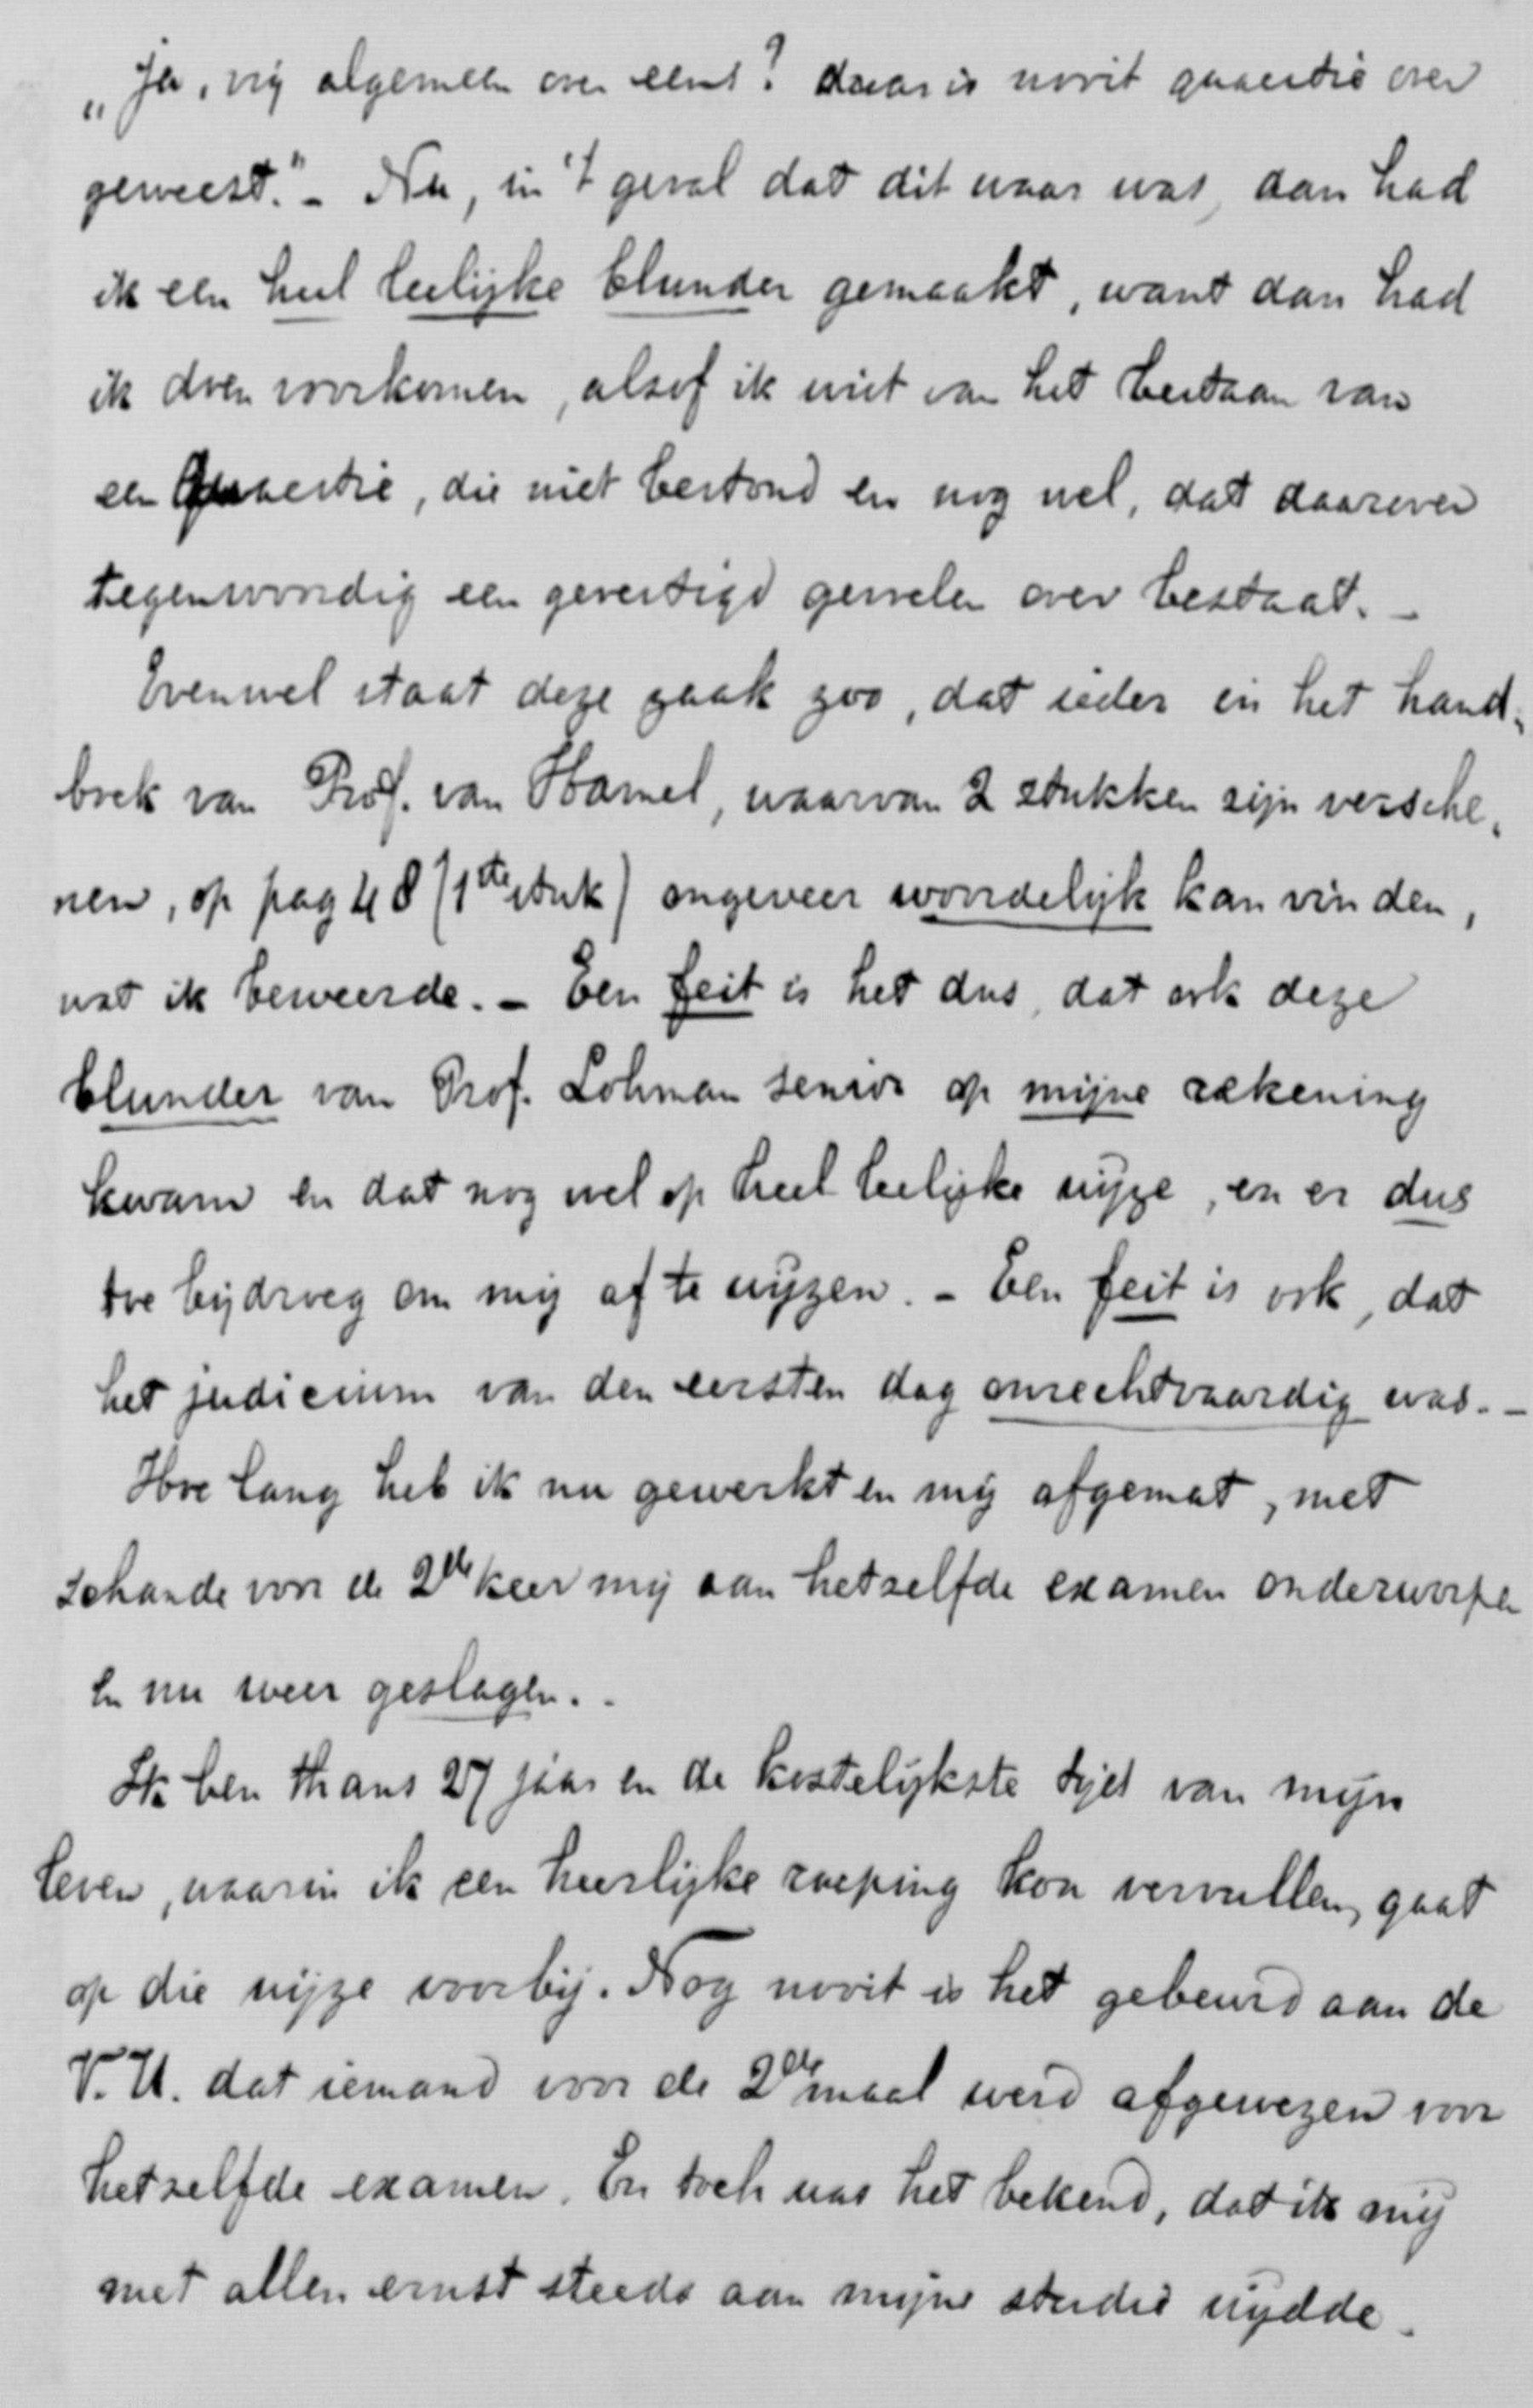 „Ja, vrij algemeen over eens? daar is nooit quaestie over
geweest." - Nu, in 't geval dat dit waar was, dan had
ik een heel leelijke blunder gemaakt, want dan had
ik doen voorkomen, alsof ik wist van het bestaan van
een quaestie, die niet bestond en nog wel, dat daarover
tegenwoordig een gevestigd gevoelen over bestaat. -
Evenwel staat deze zaak zoo, dat ieder in het hand-
boek van Prof. van Hamel, waarvan 2 stukken zijn versche-
nen, op pag 48 (1ste stuk) ongeveer woordelijk kan vinden,
wat ik beweerde. - Een feit is het dus, dat ook deze
blunder van Prof. Lohman senior op mijne rekening
kwam en dat nog wel op heel leelijke wijze, en er dus
toe bijdroeg om mij af te wijzen. - Een feit is ook, dat
het judicium van den eersten dag onrechtvaardig was. -
Hoe lang heb ik nu gewerkt en mij afgemat, met
schande voor de 2de keer mij aan hetzelfde examen onderworpen
en nu weer geslagen. -
Ik ben thans 27 jaar en de kostelijkste tijd van mijn
leven, waarin ik een heerlijke roeping kon vervullen, gaat
op die wijze voorbij. Nog nooit is het gebeurd aan de
V.U. dat iemand voor de 2de maal werd afgewezen voor
hetzelfde examen. En toch was het bekend, dat ik mij
met allen ernst steeds aan mijne studie wijdde.